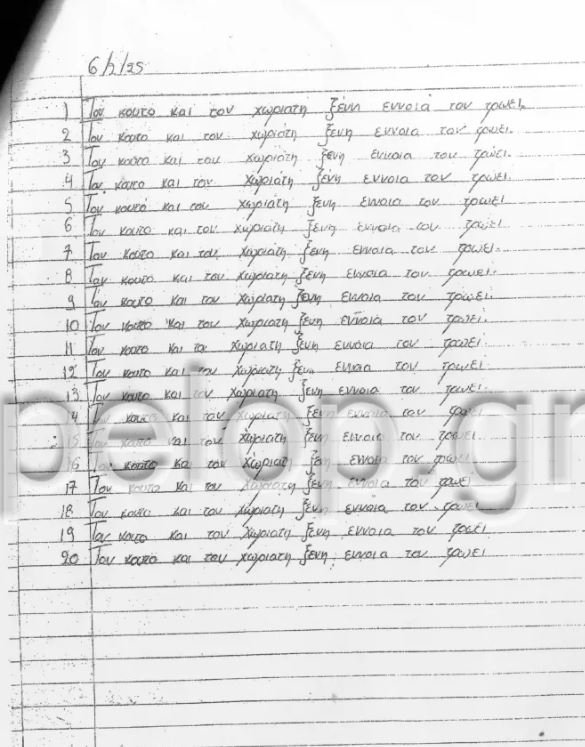 6/2/25
1 Τον κουτο και τον χωριατη ξενη εννοια τον τρωει.
2 Τον κουτο και τον χωριατη ξενη εννοια τον τρωει.
3 Τον κουτο και τον χωριατη ξενη εννοια τον τρωει.
4 Τον κουτο και τον χωριατη ξενη εννοια τον τρωει.
5 Τον κουτο και τον χωριατη ξενη εννοια τον τρωει
6 Τον κουτο και τον χωριατη ξενη εννοια τον τρωει.
7 Τον κουτο και τον χωριατη ξενη εννοια τον τρωει.
8 Τον κουτο και τον χωριατη ξενη εννοια τον τρωει.
9 Τον κουτο και τον χωριατη ξενη εννοια τον τρωει.
10 Τον κουτο και τον χωριατη ξενη εννοια τον τρωει.
11 Τον κουτο και τον χωριατη ξενη εννοια τον τρωει.
12 Τον κουτο και τον χωριατη ξενη εννοια τον τρωει
13 Τον κουτο και τον χωριατη ξενη εννοια τον τρωει.
14 κουτο και τον χωριατη ξενη εννοια τον τρωει
15 κουτο και τον χωριατη ξενη εννοια τον τρωει.
16 κουτο και τον χωριατη ξενη εννοια τον τρωει.
17 Τον κουτο και τον χωριατη ξενη εννοια τον τρωει
18 Τον κουτο και τον χωριατη ξενη εννοια τον τρωει
19 Τον κουτο και τον χωριατη ξενη εννοια τον τρωει
20 Τον κουτο και τον χωριατη ξενη εννοια τον τρωει
pelop.gr